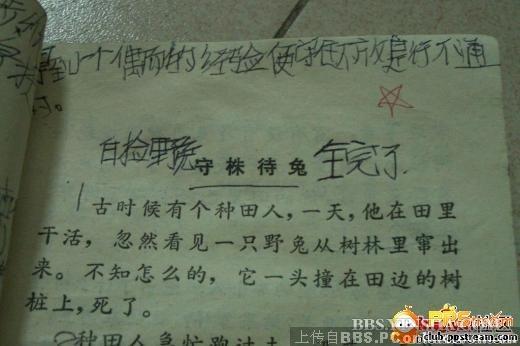 得到一个偶而的经验便守住不放是行不通
的。
白捡野兔 守株待兔 全完了.
1古时候有个种田人，一天，他在田里
干活，忽然看见一只野兔从树林里窜出
来。不知怎么的，它一头撞在田边的树
桩上，死了。
②种田人急忙跑过去
上传自BBS.P
club.pchome.net